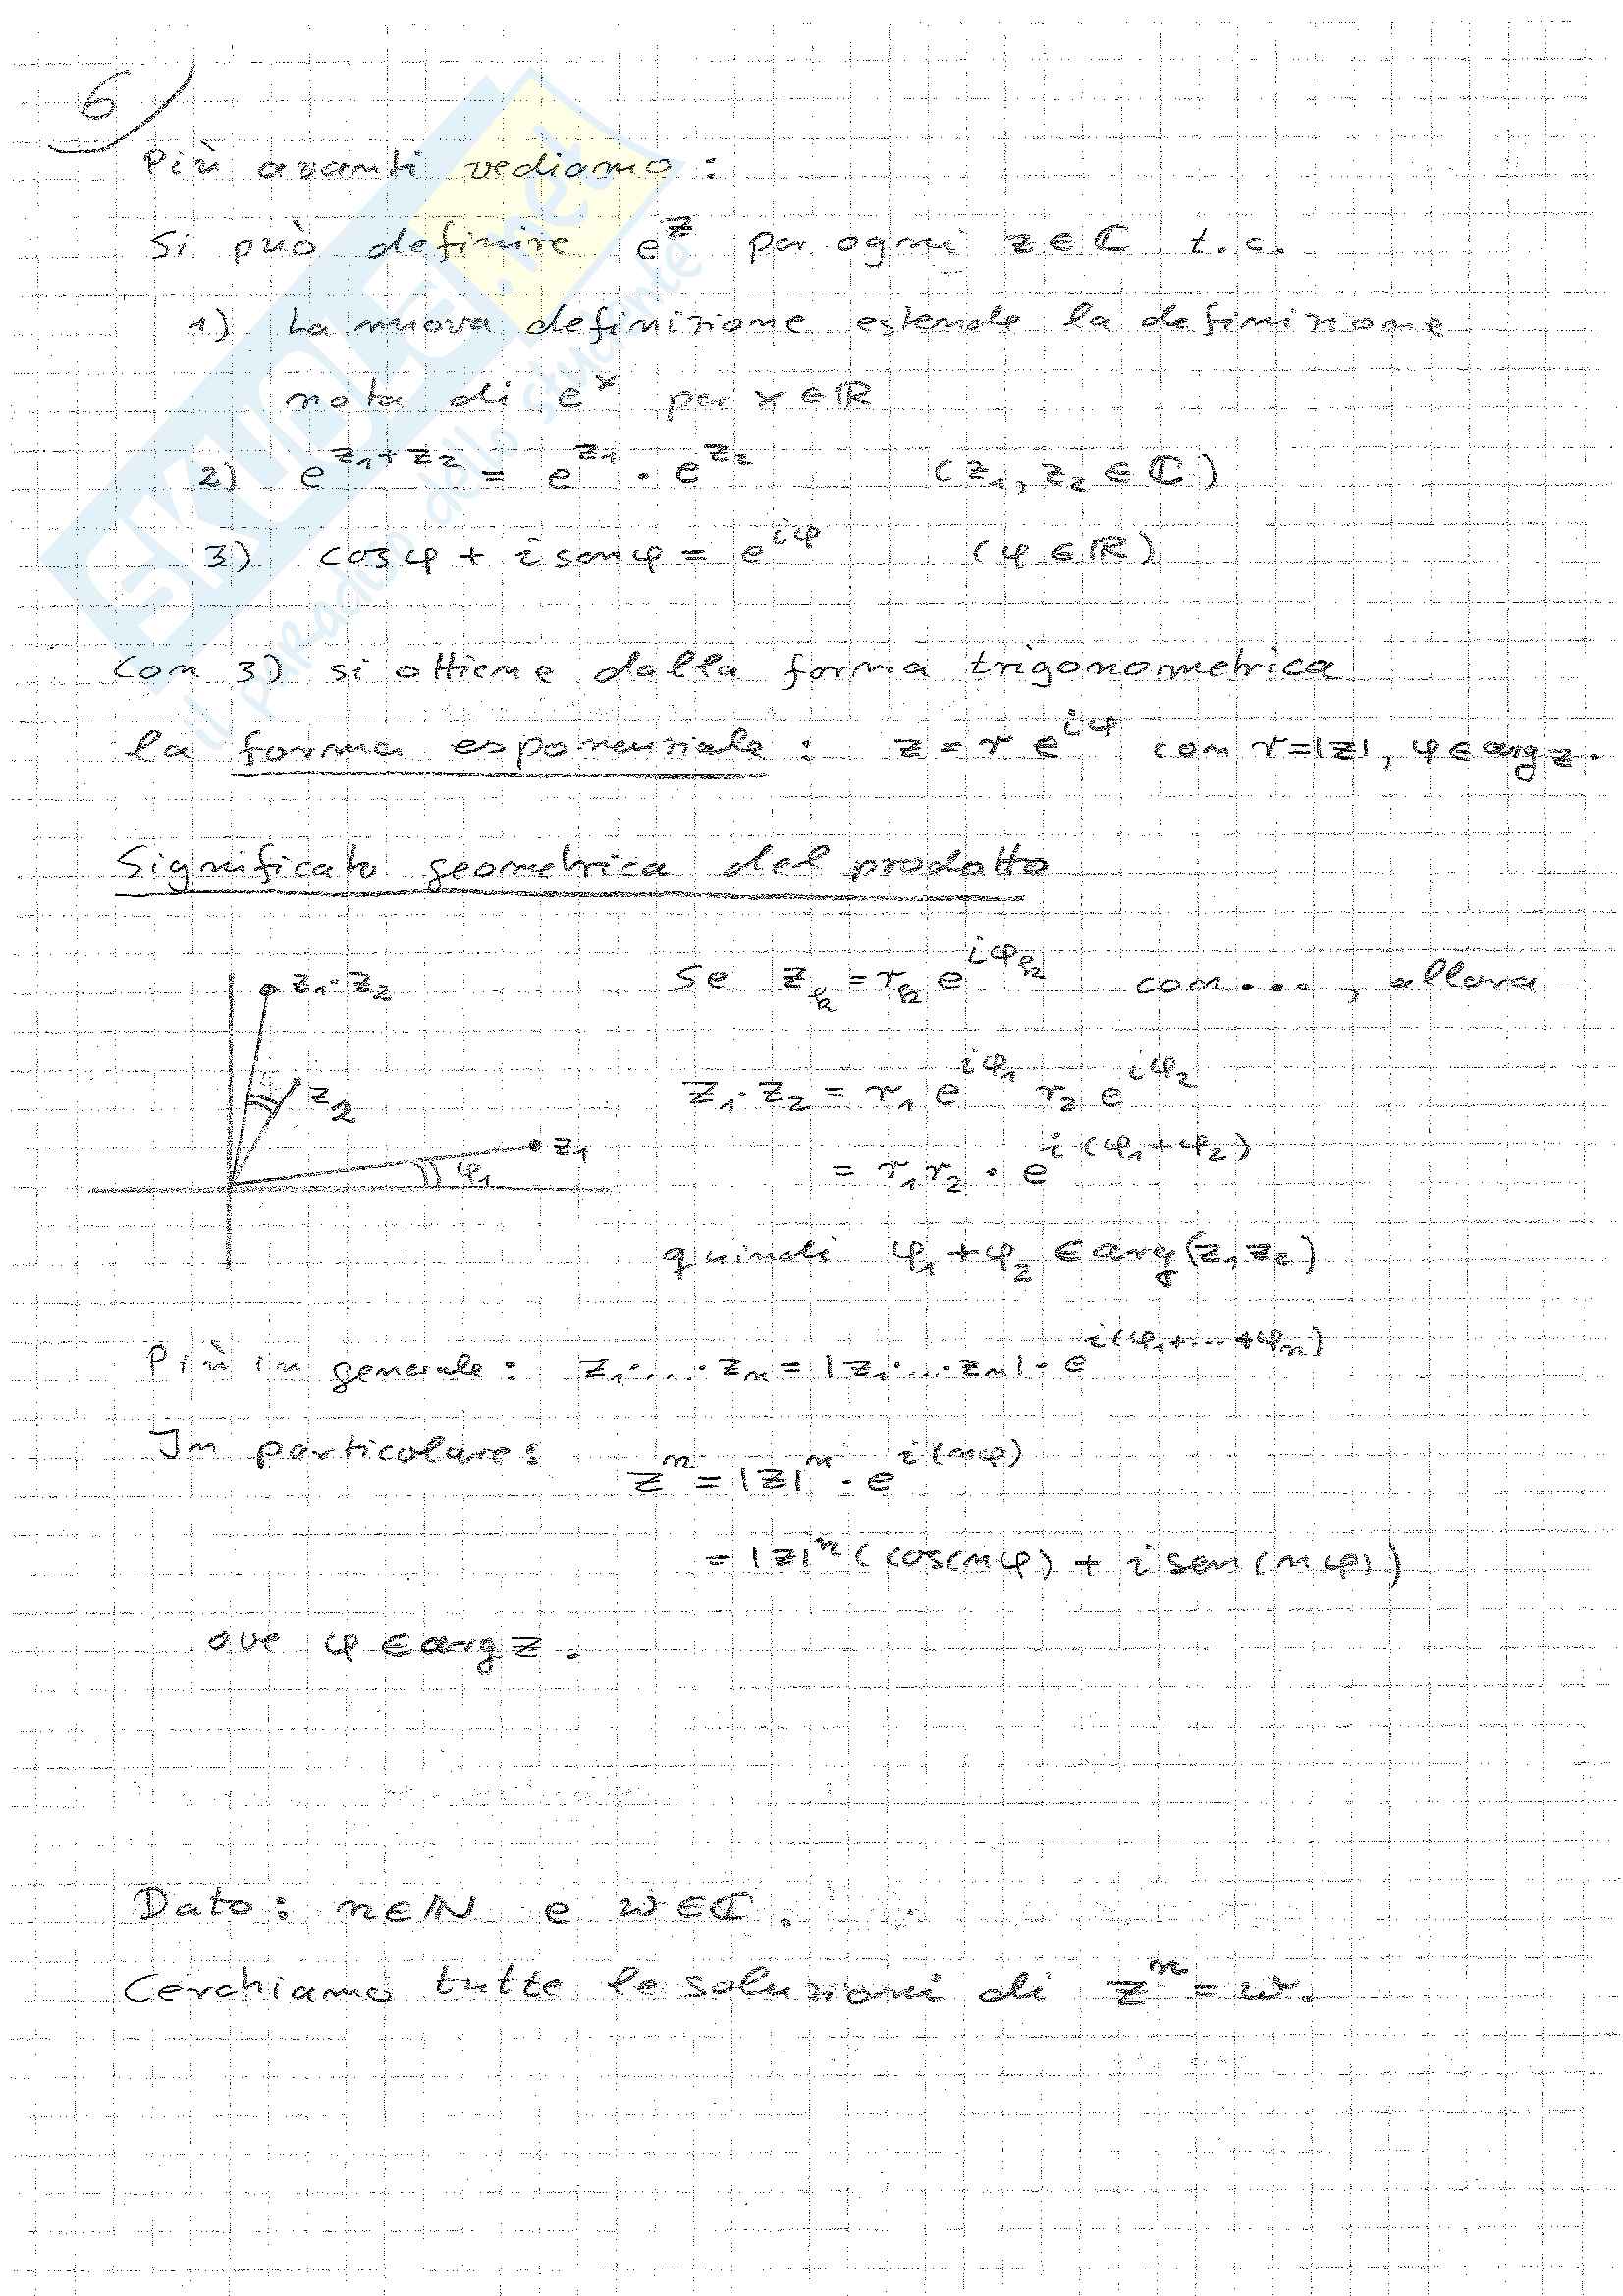 6)
Più avanti vediamo:
Si può definire e^z per ogni z∈ℂ t.c.
1) La nuova definizione estende la definizione
nota di e^x per x∈ℝ
2) e^{z₁+z₂} = e^{z₁} · e^{z₂} (z₁, z₂ ∈ ℂ)
3) cosφ + i senφ = e^{iφ} (φ∈ℝ)
Con 3) si ottiene dalla forma trigonometrica
la forma esponenziale: z = r e^{iφ} con r=|z|, φ∈arg z.
Significato geometrica del prodotto
z₁·z₂
z₂
z₁
φ₁
Se z_k = r_k e^{iφ_k} con..., allora
z₁·z₂ = r₁ e^{iφ₁} r₂ e^{iφ₂}
= r₁r₂ · e^{i(φ₁+φ₂)}
quindi φ₁+φ₂ ∈ arg(z₁z₂)
Più in generale: z₁·...·zₙ = |z₁·...·zₙ| · e^{i(φ₁+...+φₙ)}
In particolare:
z^n = |z|^n · e^{i(nφ)}
= |z|^n (cos(nφ) + i sen(nφ))
ove φ∈arg z.
Dato: n∈ℕ e w∈ℂ.
Cerchiamo tutte le soluzioni di z^n = w.